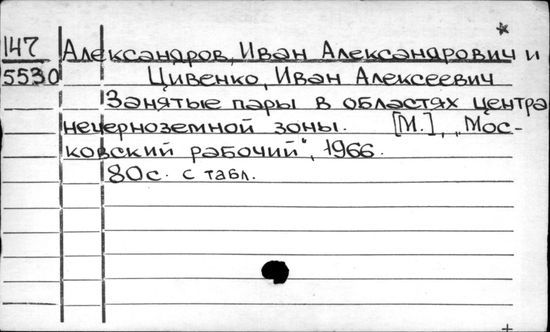 147 Александров, Иван Александрович и
5530 Цивенко, Иван Алексеевич
Занятые пары в областях центра
нечерноземной зоны. [М.], „Мос-
ковский рабочий", 1966.
80с. с табл.